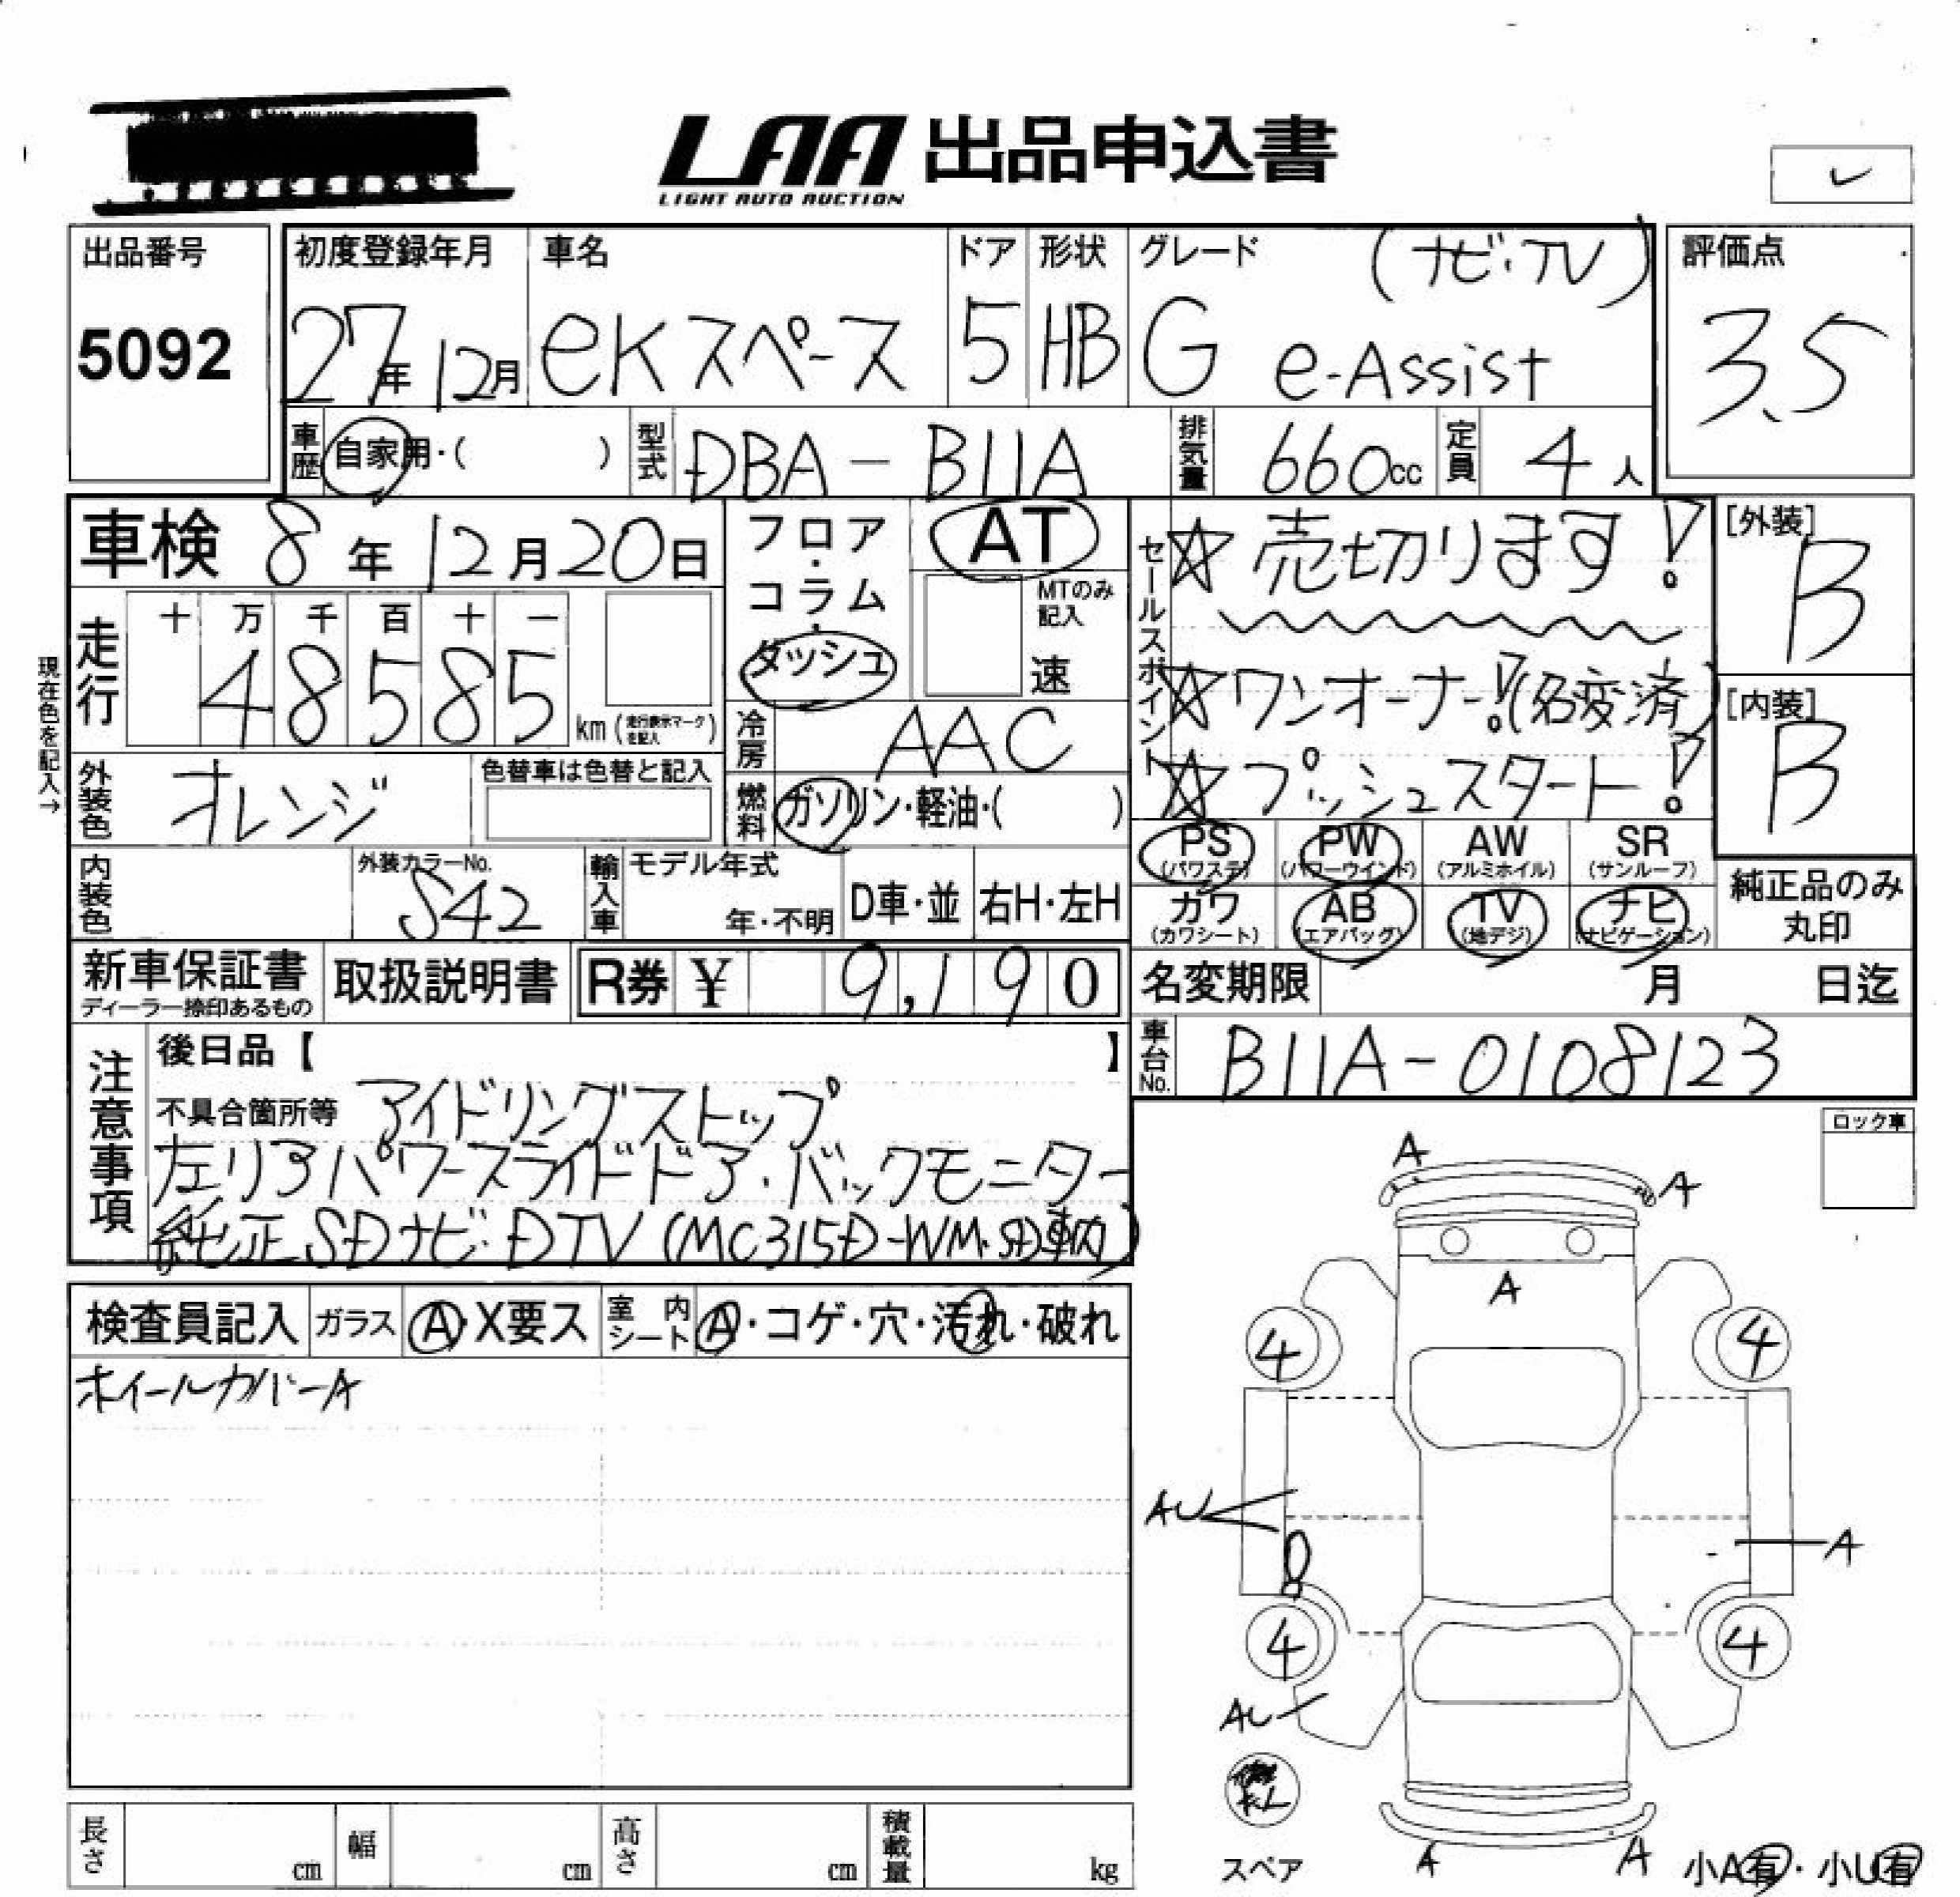 LAA 出品申込書
LIGHT AUTO AUCTION
出品番号
5092
初度登録年月
27年12月
車名
eKスペース
ドア
5
形状
HB
グレード (ナビ・TV)
G e-Assist
評価点
3.5
車歴 自家用・( )
型式 DBA-B11A
排気量 660cc
定員 4人
車検 8年12月20日
走行 十 万 千 百 十 一
48585 km (走行表示マークを記入)
現在色を記入→
外装色 オレンジ
色替車は色替と記入
内装色
外装カラーNo.
S42
輸入車 モデル年式
年・不明
D車・並 右H・左H
フロア・コラム・ダッシュ
AT
MTのみ記入
速
冷房 AAC
燃料 ガソリン・軽油・( )
セールスポイント
☆売切ります!
☆ワンオーナー!(名変済)
☆プッシュスタート!
[外装]
B
[内装]
B
PS PW AW SR
(パワステ) (パワーウインド) (アルミホイル) (サンルーフ)
カワ AB TV ナビ
(カワシート) (エアバッグ) (地デジ) (ナビゲーション)
純正品のみ
丸印
新車保証書
ディーラー捺印あるもの
取扱説明書
R券 ¥ 9,190
名変期限 月 日迄
車台No. B11A-0108123
注意事項
後日品【 】
不具合箇所等 アイドリングストップ
左リアパワースライドドア・バックモニター
純正SDナビ・DTV(MC315D-WM・SD車内)
ロック車
検査員記入 ガラス A・X要ス 室内シート A・コゲ・穴・汚れ・破れ
ホイールカバーA
A
A
A
4 4
AU
A
4 4
AU
スペア
A
A
小A有・小U有
長さ cm 幅 cm 高さ cm 積載量 kg